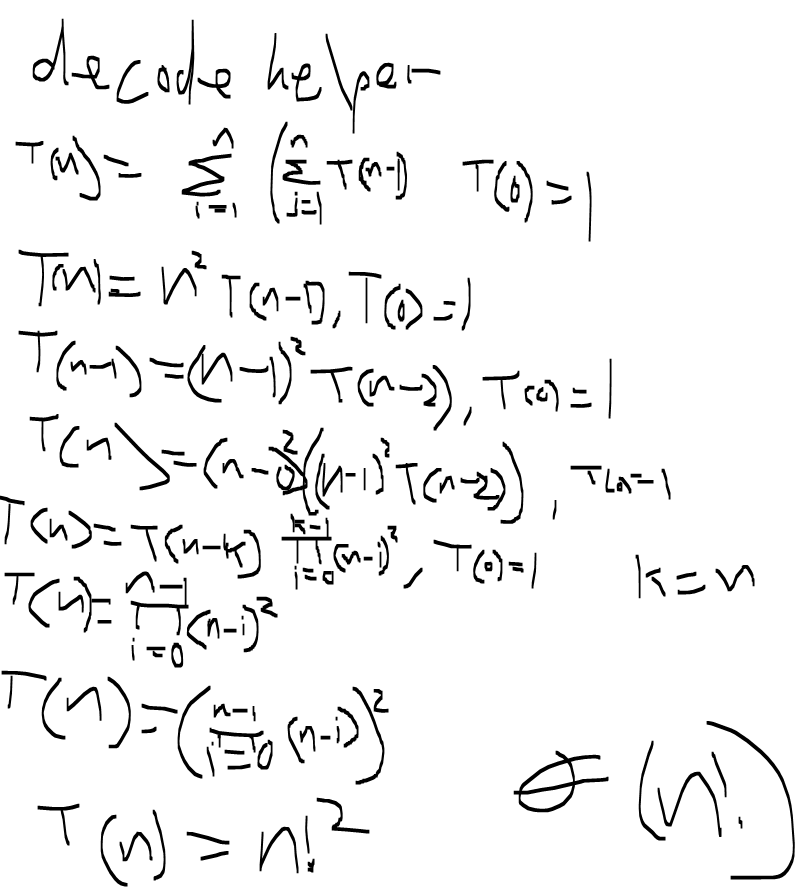 decode helper
T(n) = \sum_{i=1}^{n} ( \sum_{j=1}^{n} T(n-1)   T(0) = 1
T(n) = n^2 T(n-1), T(0) = 1
T(n-1) = (n-1)^2 T(n-2), T(0) = 1
T(n) = (n-0)^2 ((n-1)^2 T(n-2)), T(0) = 1
T(n) = T(n-k) \prod_{i=0}^{k-1} (n-i)^2, T(0) = 1   k = n
T(n) = \prod_{i=0}^{n-1} (n-i)^2
T(n) = ( \prod_{i=0}^{n-1} (n-i) )^2
T(n) = n!^2   θ(n!)